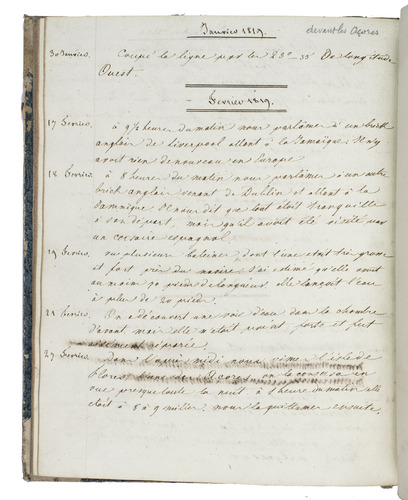 Janvier 1819.
devant les Açores
30 Janvier. Coupé la ligne par les 23° _ 35' De longitude
Ouest.
Fevrier 1819.
17 Fevrier. à 9½ heure du matin nous parlâmes à un brick
anglais de Liverpool allant à la Jamaïque. Il n'y
avoit rien de nouveau en Europe
18 Fevrier. à 8 heure du matin nous parlâmes à un autre
brick anglais venant de Dublin et allant à la
Il nous dit que tout était tranquille
à son départ, mais qu'il avoit été visité par
un corsaire espagnol.
19 Fevrier. vu plusieurs baleines dont l'une était très grosse
et fort près du navire. J'ai estimé qu'elle avoit
au moins 50 pieds de longueur. elle lançoit l'eau
à plus de 20 pieds.
21 Fevrier. On a découvert une voie d'eau dans la chambre
devant mais elle n'était pas et fut
aisément réparée.
27 Fevrier. dans l'après midi nous vîmes l'isle de
Flores une des Açores on la conserva en
vue presque toute la nuit. à 1 heure du matin elle
était à 8 à 9 milles. nous la quittames ensuite.